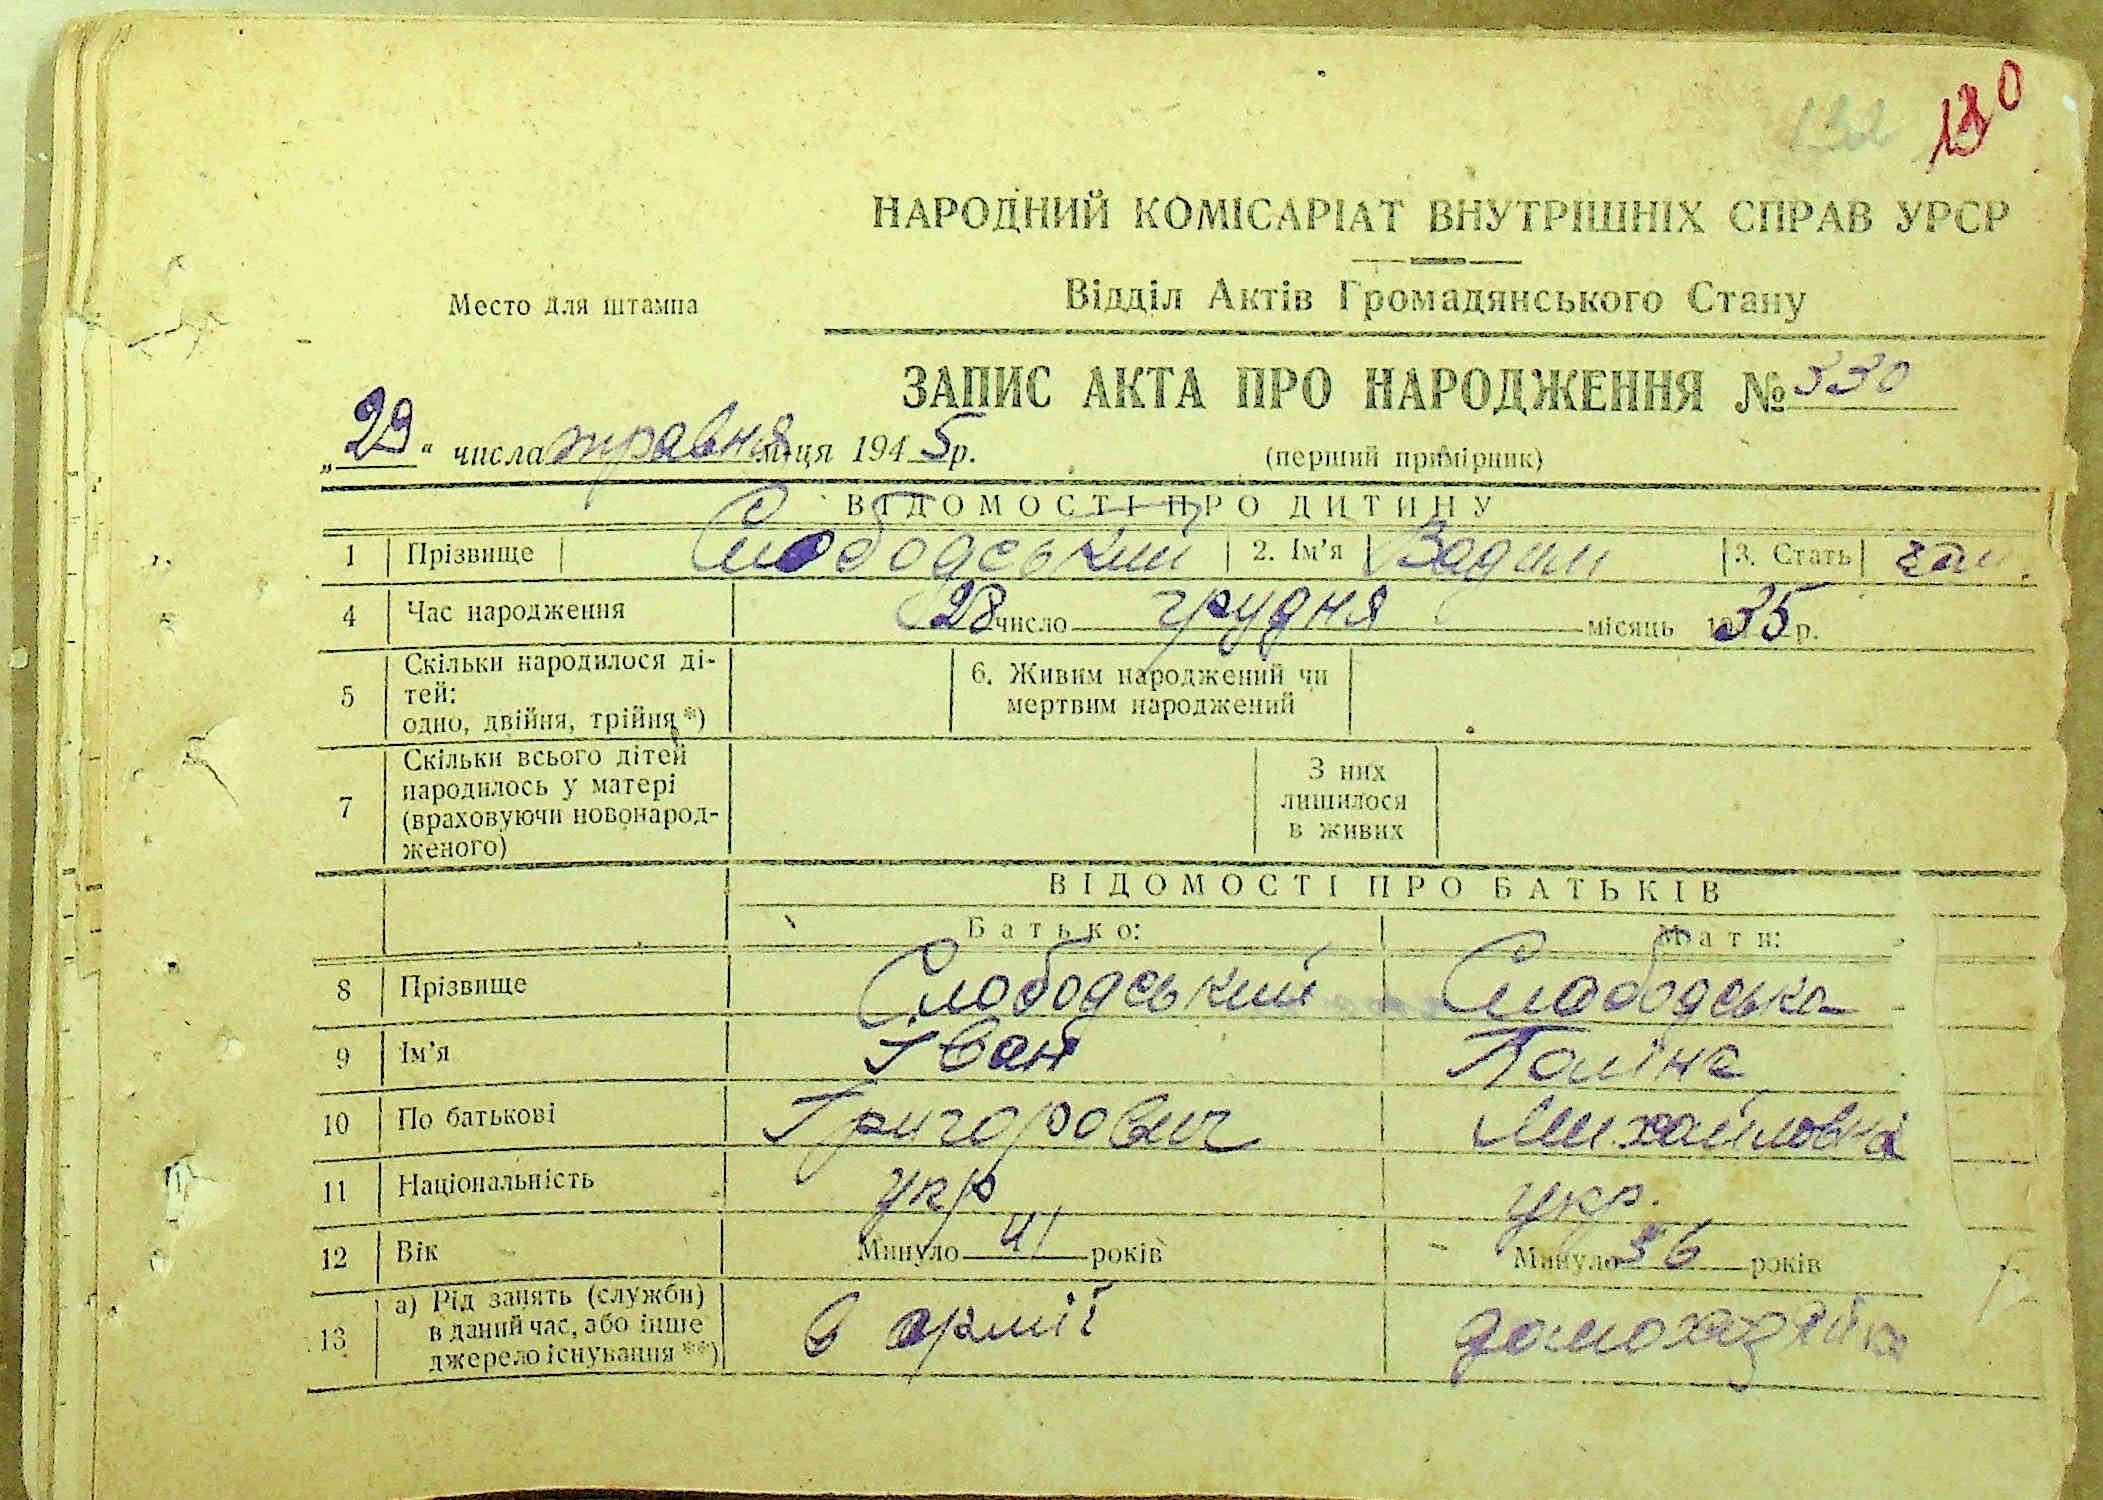 132 130
НАРОДНИЙ КОМІСАРІАТ ВНУТРІШНІХ СПРАВ УРСР
Место для штампа
Відділ Актів Громадянського Стану
ЗАПИС АКТА ПРО НАРОДЖЕННЯ № 330
„29“ числа травня м-ця 1945 р.
(перший примірник)
ВІДОМОСТІ ПРО ДИТИНУ
1 Прізвище Слободський 2. Ім'я Вадим 3. Стать чол.
4 Час народження 28 число грудня місяць 1935 р.
5 Скільки народилося ді-
тей:
одно, двійня, трійня *)
6. Живим народжений чи
мертвим народжений
7 Скільки всього дітей
народилось у матері
(враховуючи новонарод-
женого)
З них
лишилося
в живих
ВІДОМОСТІ ПРО БАТЬКІВ
Батько: Мати:
8 Прізвище Слободський Слободська
9 Ім'я Іван Поліна
10 По батькові Григорович Михайловна
11 Національність укр укр.
12 Вік Минуло 41 років Минуло 36 років
13 а) Рід занять (служби)
в даний час, або інше
джерело існування **)
в армії домохазяйка